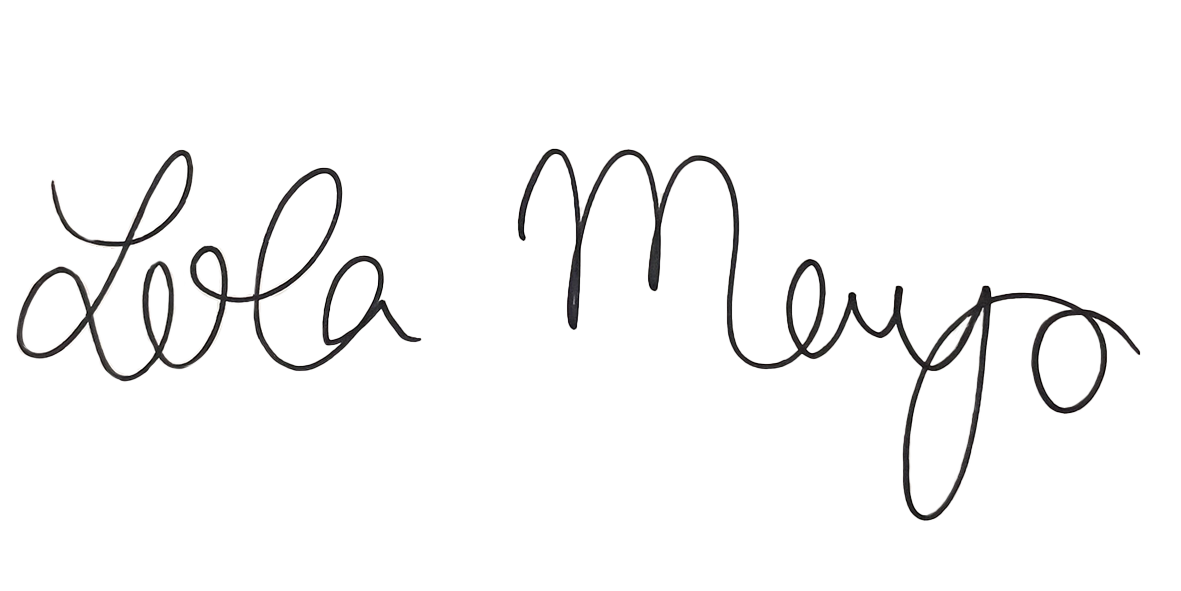 Lola Mayo